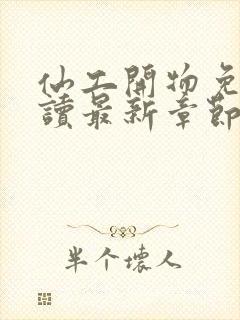 仙工開物免
讀最新章節
半个壞人